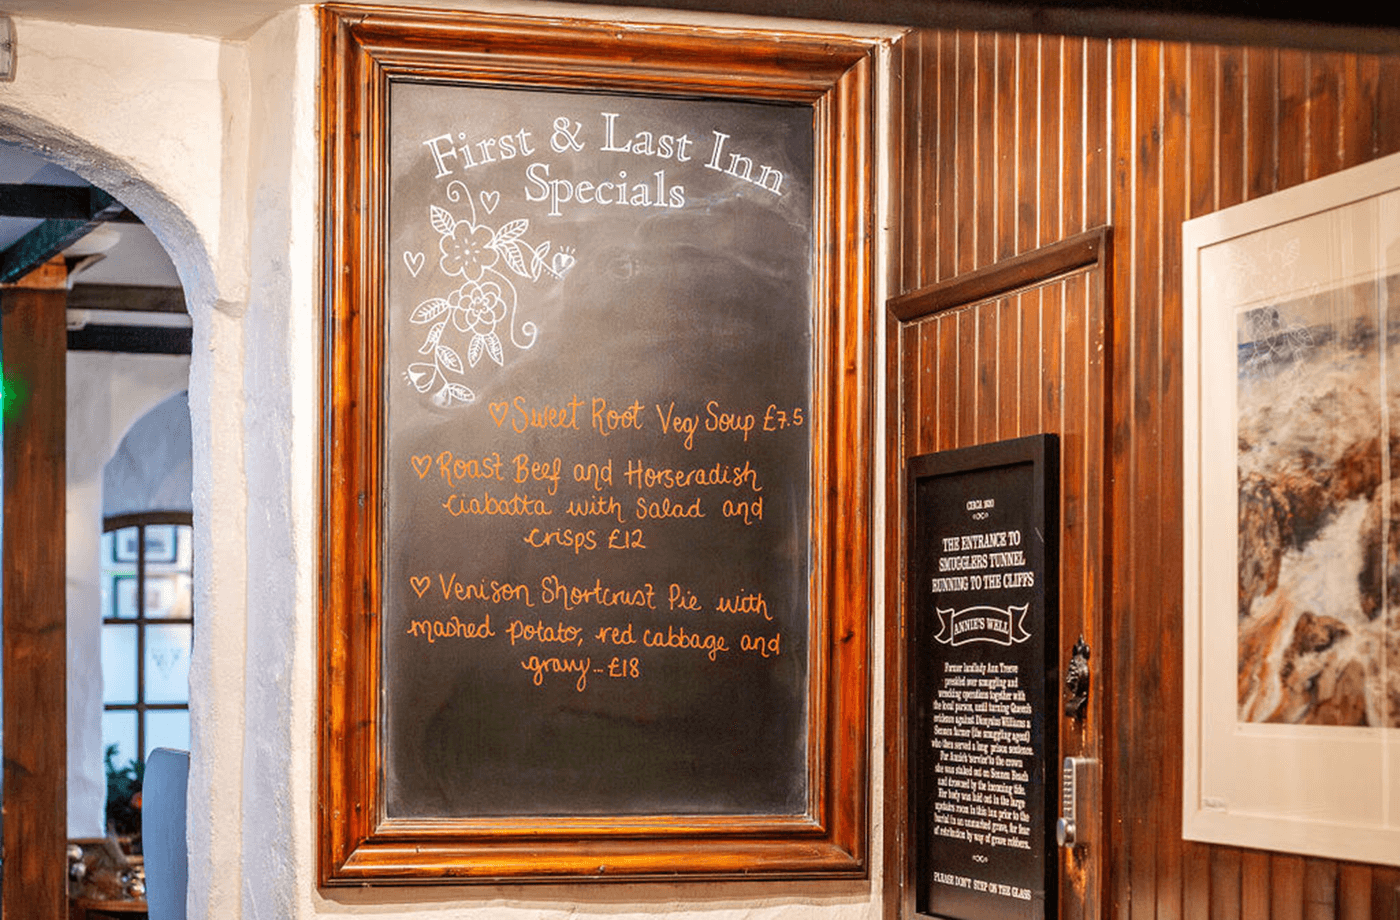 First & Last Inn
Specials
♡ Sweet Root Veg Soup £7.5
♡ Roast Beef and Horseradish
Ciabatta with Salad and
Crisps £12
♡ Venison Shortcrust Pie with
mashed potato, red cabbage and
gravy... £18
CIRCA 1620
THE ENTRANCE TO
SMUGGLERS TUNNEL
RUNNING TO THE CLIFFS
ANNIE'S WELL
Former landlady Ann Treeve
presided over smuggling and
wrecking operations together with
the local parson, until turning Queen's
evidence against Dionysius Williams a
Sennen farmer (the smuggling agent)
who then served a long prison sentence.
For Annie's 'service' to the crown
she was staked out on Sennen Beach
and drowned by the incoming tide.
Her body was laid out in the large
upstairs room in this inn prior to the
burial in an unmarked grave, for fear
of retribution by way of grave robbers.
PLEASE DON'T STEP ON THE GLASS